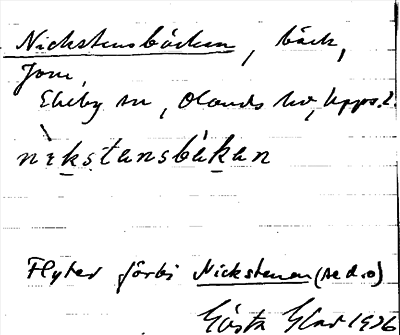 Nickstensbäcken, bäck,
Jom,
Ekeby sn, Olands hd, Upps. l.
nìkstansbä̀kan
Flyter förbi Nickstenen (se d. o)
Gösta 1936